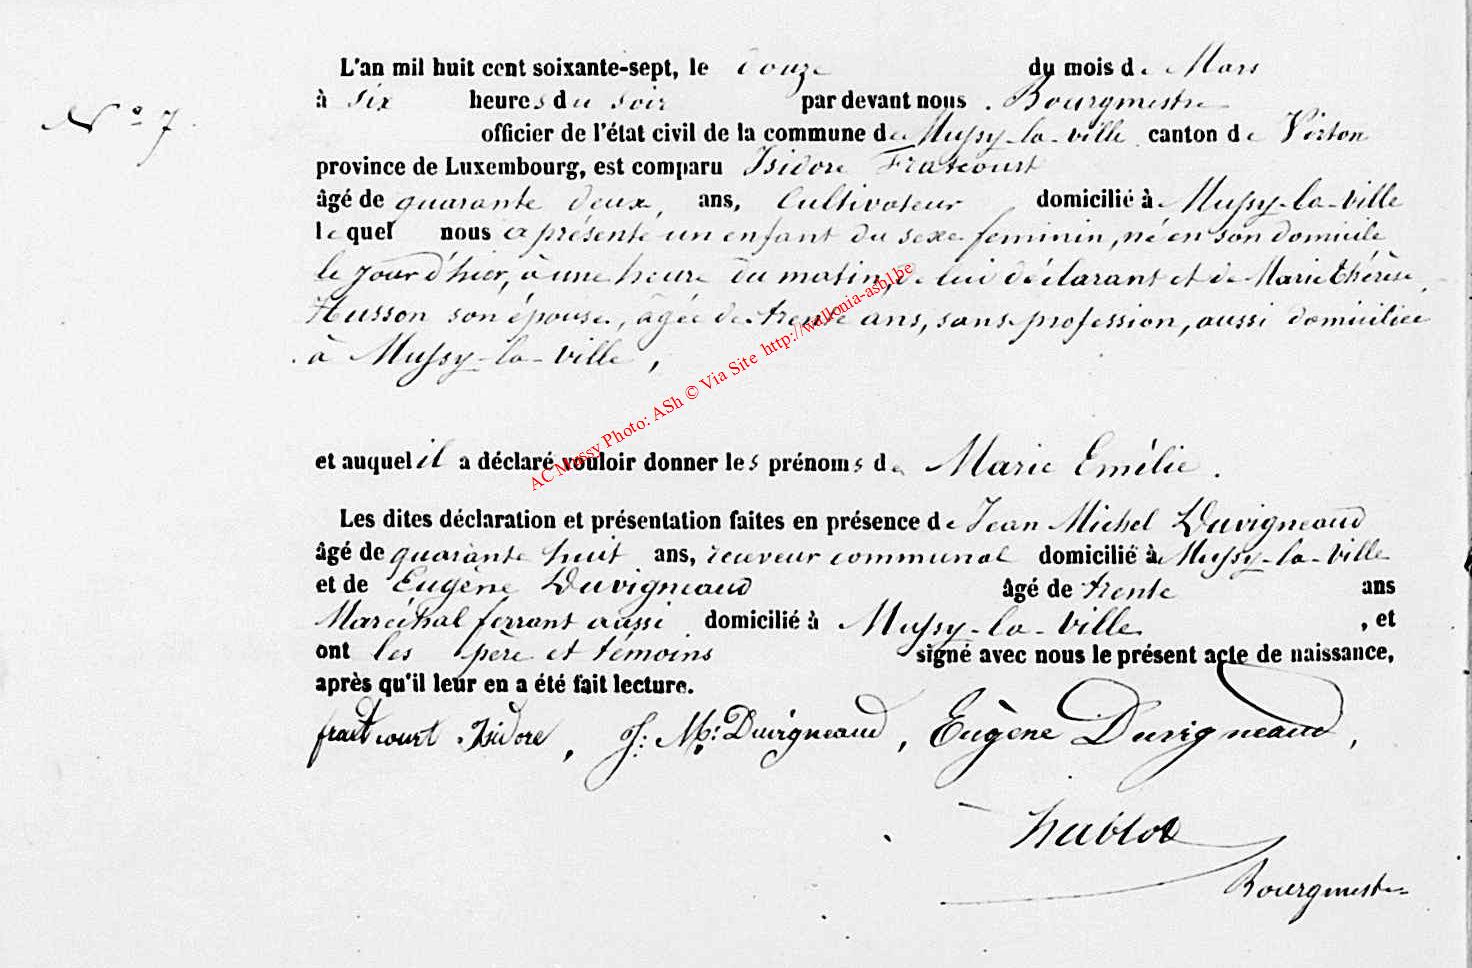 L'an mil huit cent soixante-sept, le douze du mois de Mars
N° 7.
à six heures du soir par devant nous Bourgmestre
officier de l'état civil de la commune de Mussy-la-ville canton de Virton
province de Luxembourg, est comparu Isidore Fratcourt
âgé de quarante deux, ans, Cultivateur domicilié à Mussy-la-ville
lequel nous a présenté un enfant du sexe feminin, né en son domicile
le jour d'hier, à une heure du matin, de lui déclarant et de Marie thérèse
Husson son épouse, âgée de trente ans, sans profession, aussi domiciliée
à Mussy-la-ville,
et auquel il a déclaré vouloir donner les prénoms de Marie Emélie.
Les dites déclaration et présentation faites en présence de Jean Michel Duvigneaud
âgé de quarante huit ans, receveur communal domicilié à Mussy-la-ville
et de Eugène Duvigneaud âgé de trente ans
Maréchal ferrant aussi domicilié à Mussy-la-ville, et
ont les père et témoins signé avec nous le présent acte de naissance,
après qu'il leur en a été fait lecture.
fratcourt Isidore, J: M: Duvigneaud, Eugène Duvigneaud,
Hublot
Bourgmestre
AC Mussy Photo: ASh © Via Site http://wallonia-asbl.be